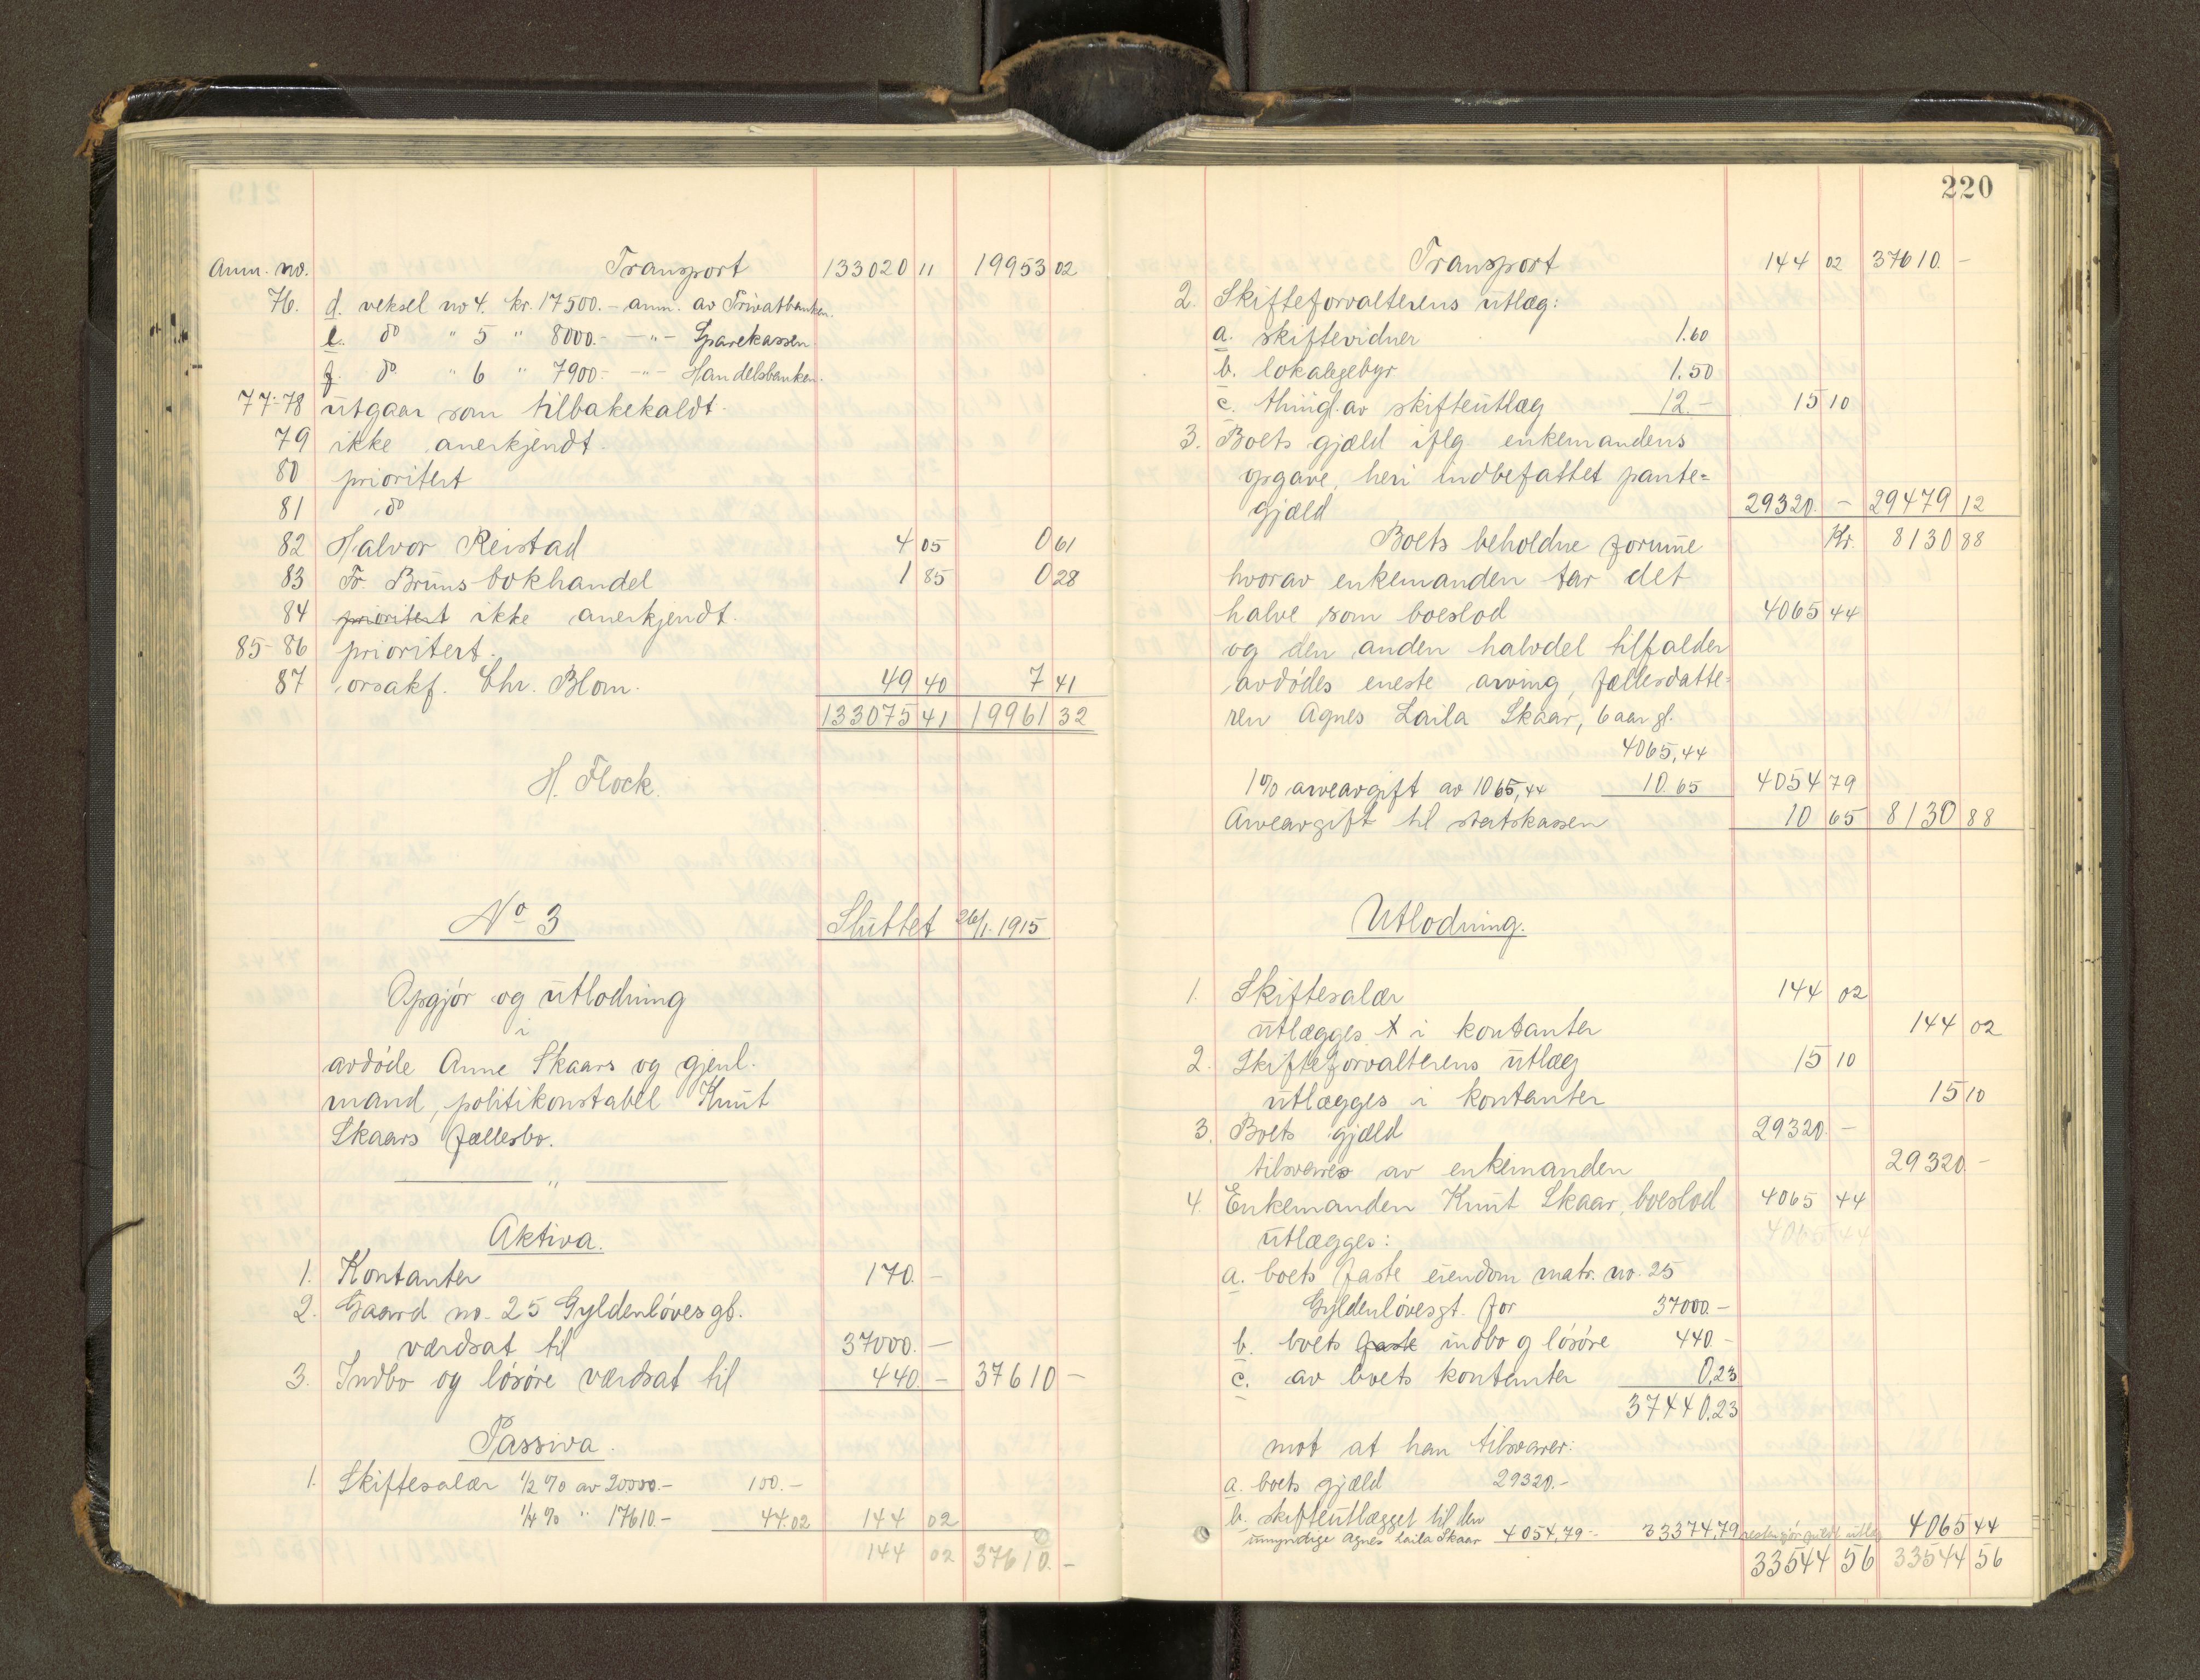 Anm. no. Transport 133020 11 19953 02
76. d. veksel no 4. kr. 17500.- anm. av Privatbanken.
e. do " 5 " 8000.- -"- Sparekassen
f. do " 6 " 7900.- -"- Handelsbanken.
77-78 utgaar som tilbakekaldt.
79 ikke anerkjendt.
80 prioritert
81 do
82 Halvor Reistad 4 05 0 61
83 Fr. Bruns bokhandel 1 85 0 28
84 prioritert ikke anerkjendt.
85-86 prioritert.
87 orsakf. Chr. Blom. 49 40 7 41
133075 41 19961 32
H. Flock.
No 3 Sluttet 26/1. 1915
Opgjør og utlodning
i
avdøde Anne Skaars og gjenl.
mand, politikonstabel Knut
Skaars fællesbo.
"
Aktiva.
1. Kontanter 170. -
2. Gaard no. 25 Gyldenløvesgt.
værdsat til 37000. -
3. Indbo og løsøre værdsat til 440. - 37610 -
Passiva.
1. Skiftesalær 1/2 % av 20000.- 100.-
1/4 % " 17610.- 44.02 144 02
144 02 37610. -
220
Transport 144 02 37610. -
2. Skifteforvalterens utlæg:
a. skiftevidner 1.60
b. lokalegebyr 1.50
c. thingl. av skifteutlæg 12.- 15 10
3. Boets gjæld iflg enkemandens
opgave, heri indbefattet pante-
gjæld 29320. - 29479 12
Boets beholdne formue Kr. 8130 88
hvorav enkemanden tar det
halve som boeslod 4065 44
og den anden halvdel tilfalder
avdødes eneste arving, fællesdatte-
ren Agnes Laila Skaar, 6 aar gl.
4065,44
1% arveavgift av 1065,44 10.65 4054 79
Arveavgift til statskassen 10 65 8130 88
Utlodning.
1. Skiftesalær 144 02
utlægges i kontanter 144 02
2. Skifteforvalterens utlæg 15 10
utlægges i kontanter 15 10
3. Boets gjæld 29320. -
tilsvares av enkemanden 29320. -
4. Enkemanden Knut Skaar, boeslod 4065 44
utlægges: 4065 44
a. boets faste eiendom matr. no. 25
Gyldenløvesgt. for 37000.-
b. boets faste indbo og løsøre 440.-
c. av boets kontanter 0,23
37440,23
mot at han tilsvarer:
a. boets gjæld 29320.-
b. skifteutlægget til den
umyndige Agnes Laila Skaar 4054,79.- 33374,79 4065 44
33544 56 33544 56